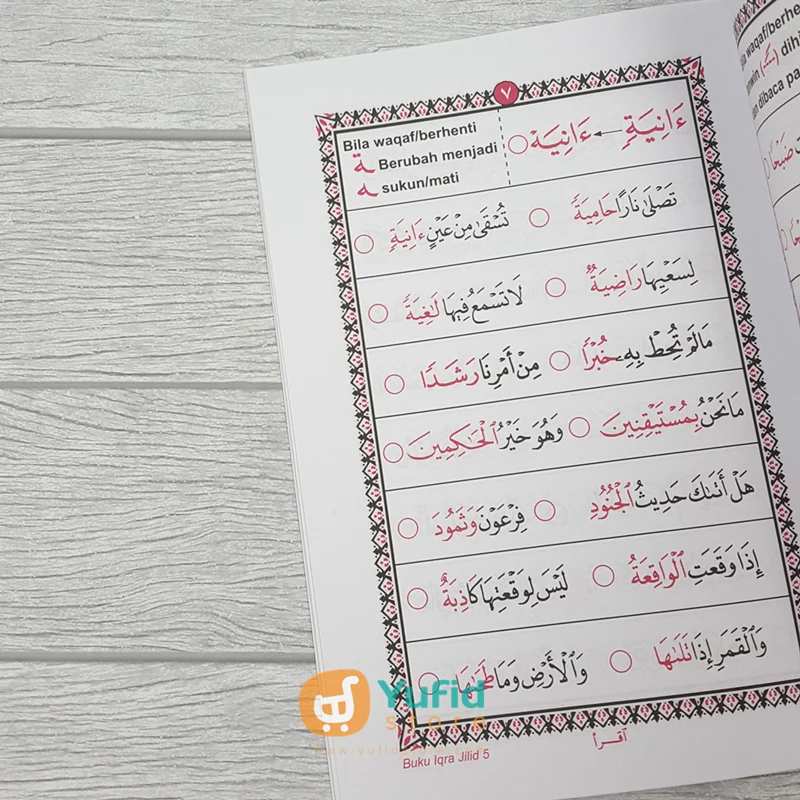 ٧
Bila waqaf/berhenti
ـة Berubah menjadi
ـه sukun/mati
ءَانِيَةٍ ← ءَانِيَهْ ○
تَصْلَىٰ نَارًا حَامِيَةً ○ تُسْقَىٰ مِنْ عَيْنٍ ءَانِيَةٍ ○
لِسَعْيِهَا رَاضِيَةٌ ○ لَا تَسْمَعُ فِيهَا لَٰغِيَةً ○
مَالَمْ تُحِطْ بِهِۦ خُبْرًا ○ مِنْ أَمْرِنَا رَشَدًا ○
مَا نَحْنُ بِمُسْتَيْقِنِينَ ○ وَهُوَ خَيْرُ ٱلْحَٰكِمِينَ ○
هَلْ أَتَىٰكَ حَدِيثُ ٱلْجُنُودِ ○ فِرْعَوْنَ وَثَمُودَ ○
إِذَا وَقَعَتِ ٱلْوَاقِعَةُ ○ لَيْسَ لِوَقْعَتِهَا كَاذِبَةٌ ○
وَٱلْقَمَرِ إِذَا تَلَىٰهَا ○ وَٱلْأَرْضِ وَمَا طَحَىٰهَا ○
إقرأ
Buku Iqra Jilid 5
waqaf/berhenti
dibaca pa
Yufid
store